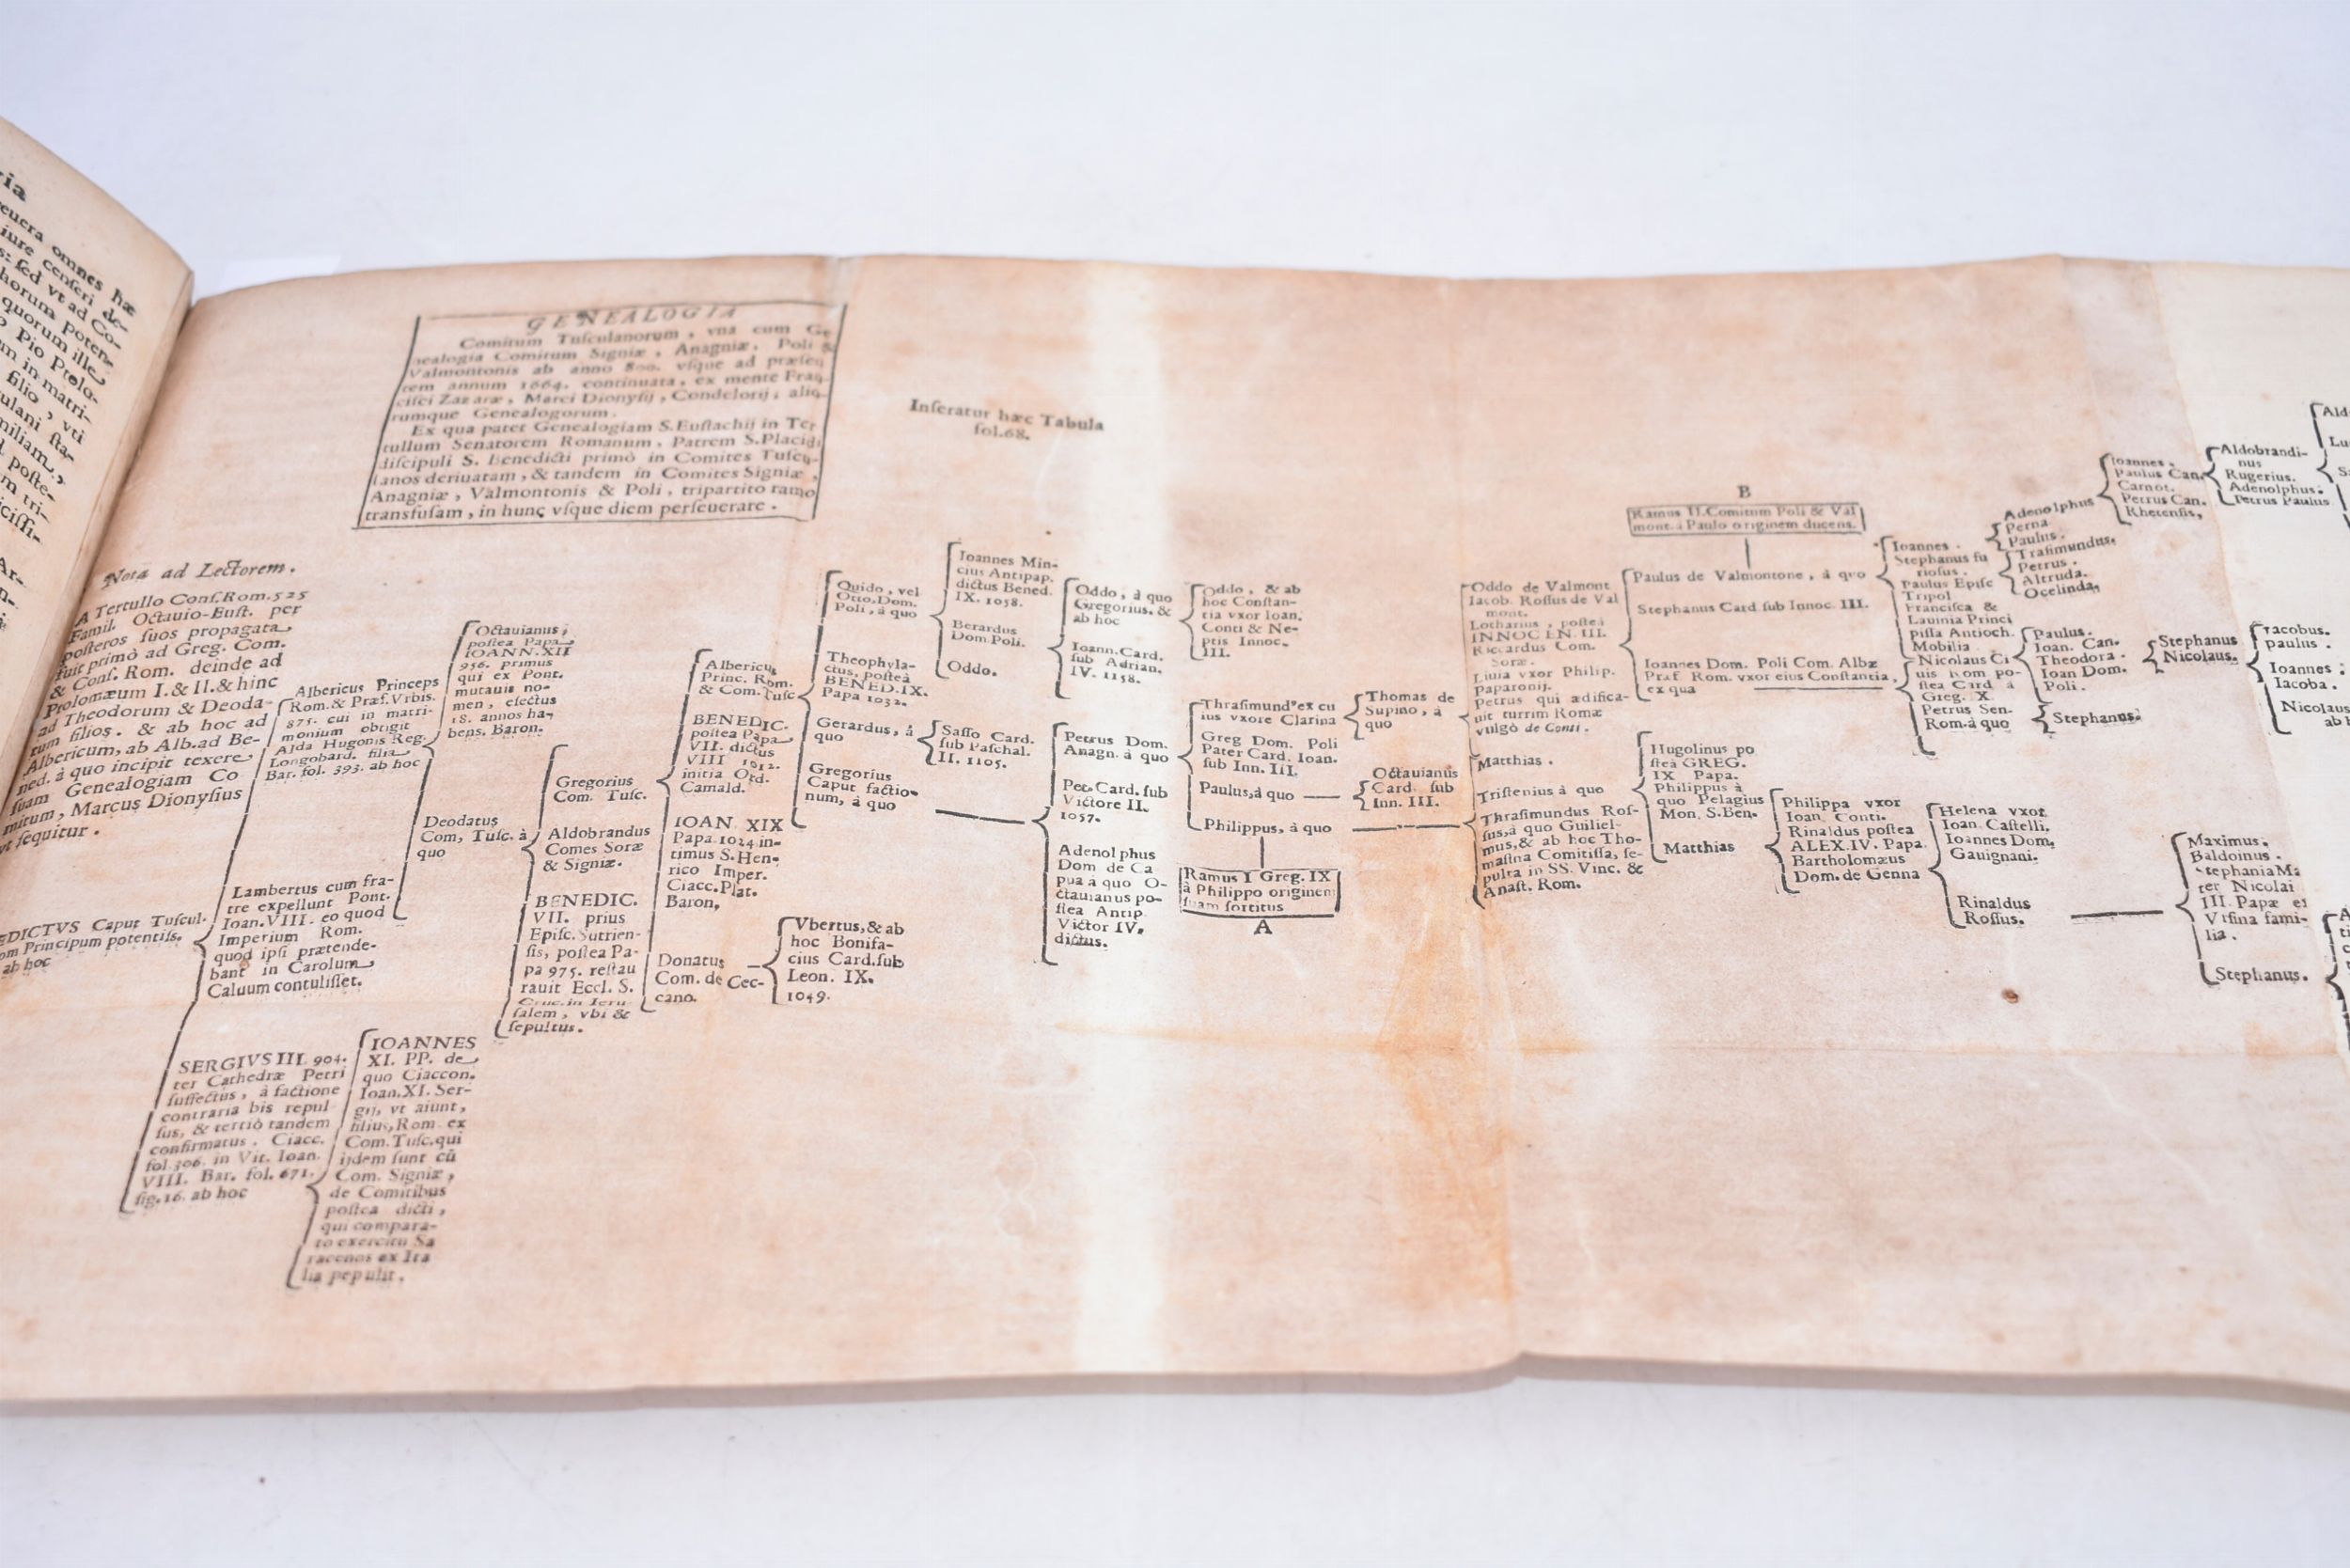 ria
reuera omnes hæ
iure censeri de-
s: sed vt ad Co-
horum poten-
quorum ille
Pio Ptolo-
m in matri-
filio, vti
ulani sta-
miliam,
poste-
m tri-
ciſſi-
Ar-
GENEALOGIA
Comitum Tuſculanorum, vna cum Ge-
nealogia Comitum Signiæ, Anagniæ, Poli &
Valmontonis ab anno 800. vſque ad præſen
tem annum 1664. continuata, ex mente Fran
ciſci Zazaræ, Marci Dionyſij, Condelorij, alio
rumque Genealogorum.
Ex qua patet Genealogiam S. Euſtachij in Ter
tullum Senatorem Romanum, Patrem S. Placidi
diſcipuli S. Benedicti primò in Comites Tuſcu-
lanos deriuatam, & tandem in Comites Signiæ,
Anagniæ, Valmontonis & Poli, tripartito ramo
transfuſam, in hunc vſque diem perſeuerare.
Inſeratur hæc Tabula
fol.68.
Nota ad Lectorem.
A Tertullo Conſ. Rom. 525
Famil. Octauio-Euſt. per
poſteros ſuos propagata
fuit primò ad Greg. Com.
& Conſ. Rom. deinde ad
Ptolomæum I. & II. & hinc
ad Theodorum & Deoda-
tum filios. & ab hoc ad
Albericum, ab Alb. ad Be-
ned. à quo incipit texere
ſuam Genealogiam Co
mitum, Marcus Dionyſius
vt ſequitur.
EDICTVS Caput Tuſcul.
om Principum potentiſs.
ab hoc
Albericus Princeps
Rom. & Præf. Vrbis.
875. cui in matri-
monium obtigit
Alda Hugonis Reg.
Longobard. filia
Bar. fol. 393. ab hoc
Lambertus cum fra-
tre expellunt Pont.
Ioan. VIII. eo quod
Imperium Rom.
quod ipſi prætende-
bant in Carolum
Caluum contuliſſet.
SERGIVS III. 904.
ter Cathedræ Petri
ſuffectus, à factione
contraria bis repul
ſus, & tertiò tandem
confirmatus. Ciacc.
fol. 306. in Vit. Ioan.
VIII. Bar. fol. 671.
fig. 16. ab hoc
IOANNES
XI. PP. de
quo Ciaccon.
Ioan. XI. Ser-
gij, vt aiunt,
filius, Rom. ex
Com. Tuſc. qui
ijdem ſunt cũ
Com. Signiæ,
de Comitibus
poſtea dicti,
qui compara-
to exercitu Sa
racenos ex Ita
lia pepulit.
Octauianus,
poſtea Papa
IOANN. XII
956. primus
qui ex Pont.
mutauit no-
men, electus
18. annos ha-
bens. Baron.
Deodatus
Com, Tuſc. à
quo
Gregorius
Com. Tuſc.
Aldobrandus
Comes Soræ
& Signiæ.
BENEDIC.
VII. prius
Epiſc. Sutrien-
ſis, poſtea Pa-
pa 975. reſtau
rauit Eccl. S.
Cruc. in Ieru-
ſalem, vbi &
ſepultus.
Albericus
Princ. Rom.
& Com. Tuſc
BENEDIC.
poſtea Papa
VII. dictus
VIII 1012.
initia Ord.
Camald.
IOAN. XIX
Papa 1024 in-
timus S. Hen-
rico Imper.
Ciacc. Plat.
Baron,
Donatus
Com. de Cec-
cano.
Vbertus, & ab
hoc Bonifa-
cius Card. ſub
Leon. IX.
1049.
Quido, vel
Otto. Dom.
Poli, à quo
Theophyla-
ctus, poſteà
BENED. IX.
Papa 1032.
Gerardus, à
quo
Gregorius
Caput factio-
num, à quo
Ioannes Min-
cius Antipap.
dictus Bened.
IX. 1058.
Berardus
Dom. Poli.
Oddo.
Saſſo Card.
ſub Paſchal.
II. 1105.
Oddo, à quo
Gregorius. &
ab hoc
Ioann. Card.
ſub Adrian.
IV. 1158.
Petrus Dom.
Anagn. à quo
Pet. Card. ſub
Victore II.
1057.
Adenolphus
Dom de Ca
pua à quo O-
ctauianus po-
ſtea Antip.
Victor IV.
dictus.
Oddo, & ab
hoc Conſtan-
tia vxor Ioan.
Conti & Ne-
ptis Innoc.
III.
Thraſimund9 ex cu
ius vxore Clarina
Greg Dom. Poli
Pater Card. Ioan.
ſub Inn. III.
Paulus, à quo
Philippus, à quo
Ramus I Greg. IX
à Philippo originem
ſuam ſortitus
A
Thomas de
Supino, à
quo
Octauianus
Card. ſub
Inn. III.
Oddo de Valmont
Iacob. Roſſus de Val
mont.
Lotharius, poſteà
INNOCEN. III.
Riccardus Com.
Soræ.
Liuia vxor Philip.
Paparonij.
Petrus qui ædifica-
uit turrim Romæ
vulgò de Conti.
Matthias.
Triſtenius à quo
Thraſimundus Roſ-
ſus, à quo Guiliel-
mus, & ab hoc Tho-
maſina Comitiſſa, ſe-
pulta in SS. Vinc. &
Anaſt. Rom.
B
Ramus II. Comitum Poli & Val
mont. à Paulo originem ducens.
Paulus de Valmontone, à quo
Stephanus Card ſub Innoc. III.
Ioannes Dom. Poli Com. Albæ
Præf. Rom. vxor eius Conſtantia,
ex qua
Hugolinus po
ſteà GREG.
IX Papa.
Philippus à
quo Pelagius
Mon. S. Ben.
Matthias
Philippa vxor
Ioan. Conti.
Rinaldus poſtea
ALEX. IV. Papa.
Bartholomæus
Dom. de Genna
Helena vxor
Ioan. Caſtelli,
Ioannes Dom,
Gauignani.
Rinaldus
Roſſus.
Ioannes.
Stephanus fu
rioſus.
Paulus Epiſc
Tripol
Franciſca &
Lauinia Princi
piſſa Antioch.
Mobilia
Nicolaus Ci
uis Rom po-
ſtea Card à
Greg. X.
Petrus Sen-
Rom. à quo
Adenolphus
Perna
Paulus.
Traſimundus,
Petrus.
Altruda.
Ocelinda,
Paulus.
Ioan. Can.
Theodora.
Ioan Dom.
Poli.
Stephanus.
Ioannes.
Paulus Can.
Carnot.
Petrus Can.
Rhetenſis,
Aldobrandi-
nus
Rugerius.
Adenolphus.
Petrus Paulus
Stephanus
Nicolaus.
Iacobus.
paulus.
Ioannes:
Iacoba.
Nicolaus
ab h
Maximus.
Baldoinus.
Stephania Ma
ter Nicolai
III. Papæ ex
Vrſina fami-
lia.
Stephanus.
Ald
Lu